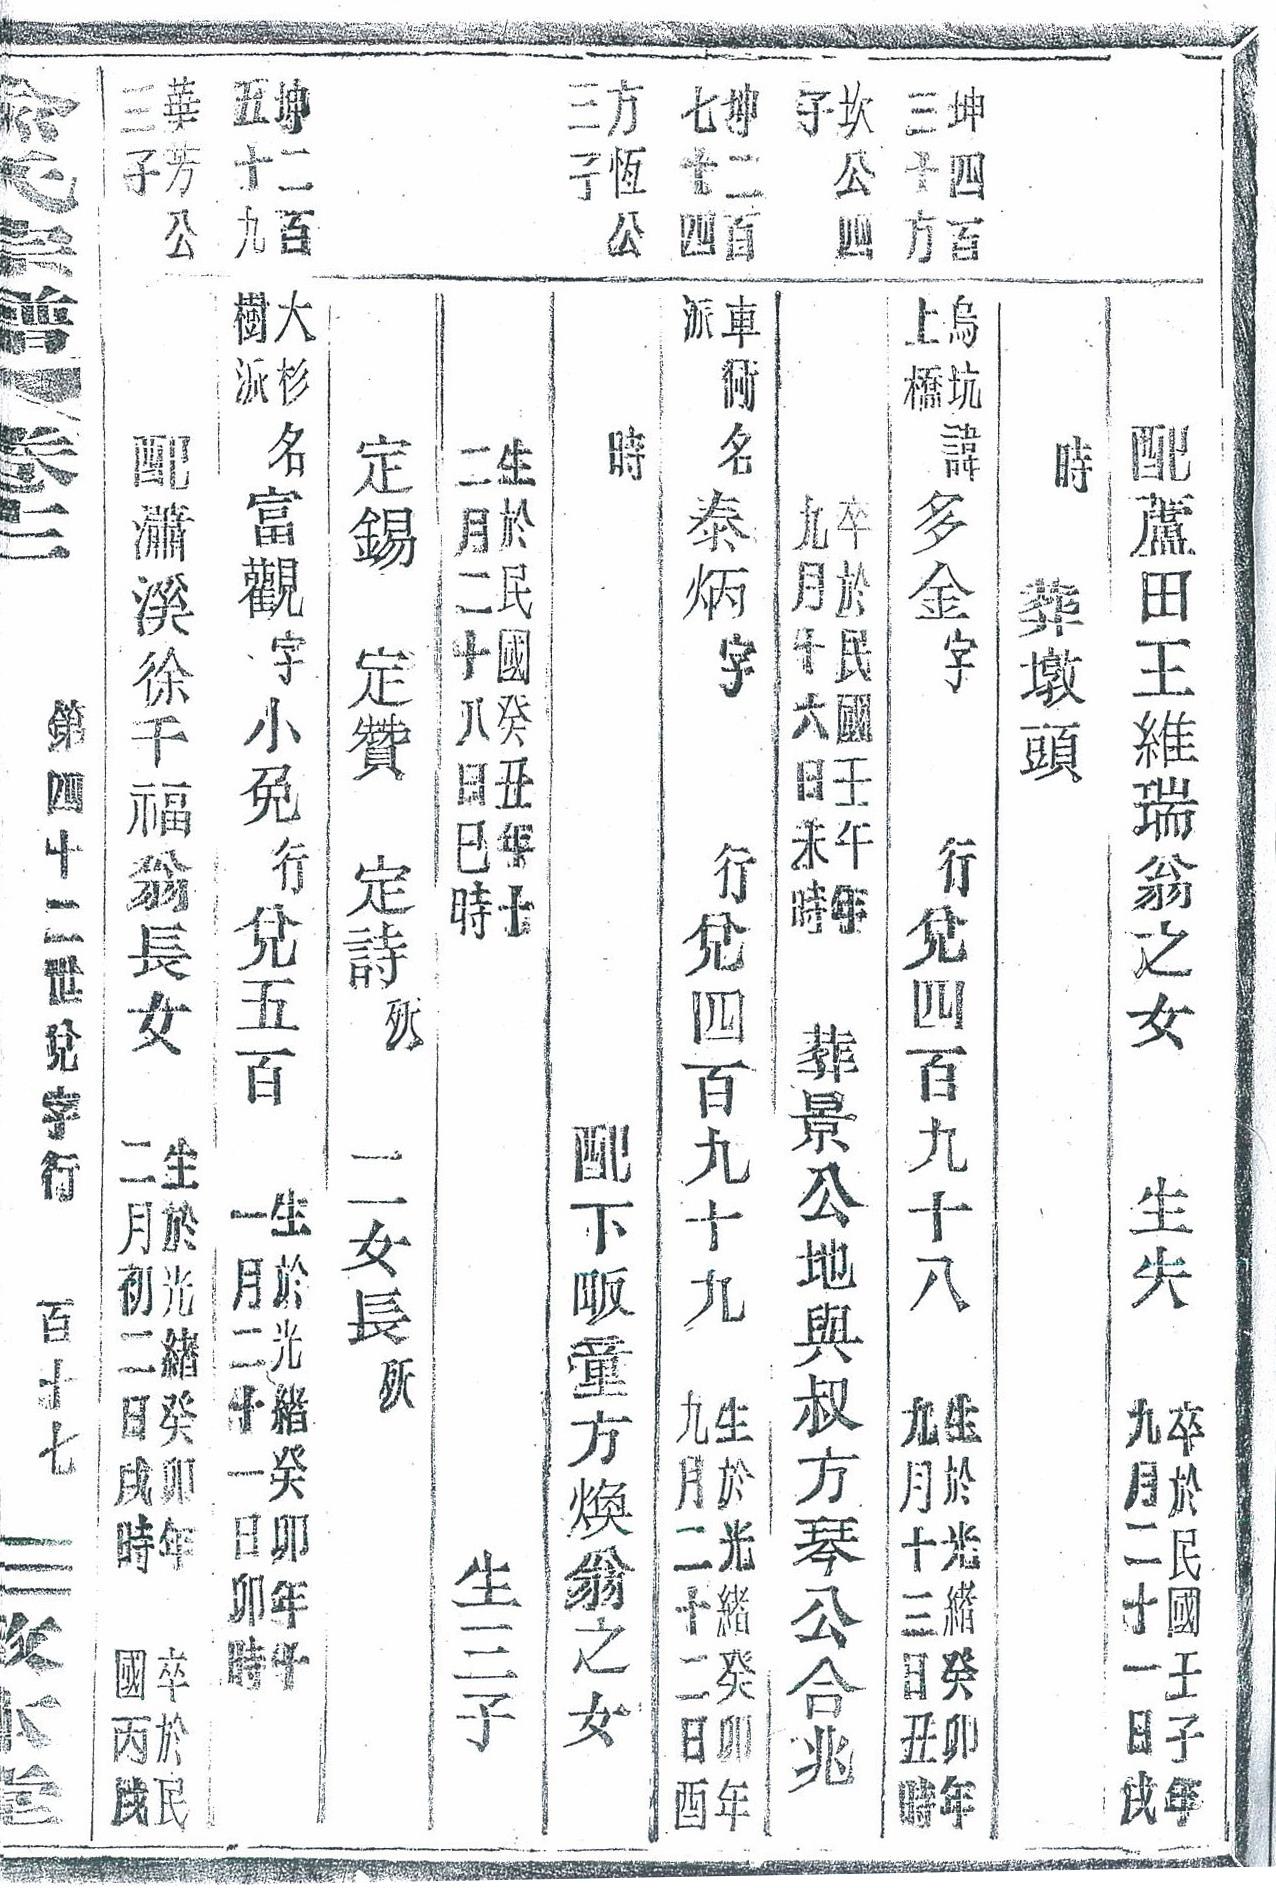 配蘆田王維瑞翁之女　生失　卒於民國壬子年
九月二十一日戌
時　葬墩頭
坤四百
三十方
烏坑
上橋
諱多金字　行兌四百九十八　生於光緒癸卯年
九月十三日丑時
坎公四
子
卒於民國壬午年
九月十六日未時
葬景公地與叔方琴公合兆
坤二百
七十四
車衕
派
名泰炳字　行兌四百九十九　生於光緒癸卯年
九月二十二日酉
方恆公
三子
時　配下畈童方煥翁之女
生於民國癸丑年十
二月二十八日巳時
生三子
定錫　定贊　定詩殀　二女長殀
坤二百
五十九
大杉
樹派
名富觀字小免行兌五百　生於光緒癸卯年十
一月二十一日卯時
華芳公
三子
配瀟溪徐千福翁長女　生於光緒癸卯年
二月初二日戌時
卒於民
國丙戌
宗譜　卷三　第四十二世兌字行　百十七